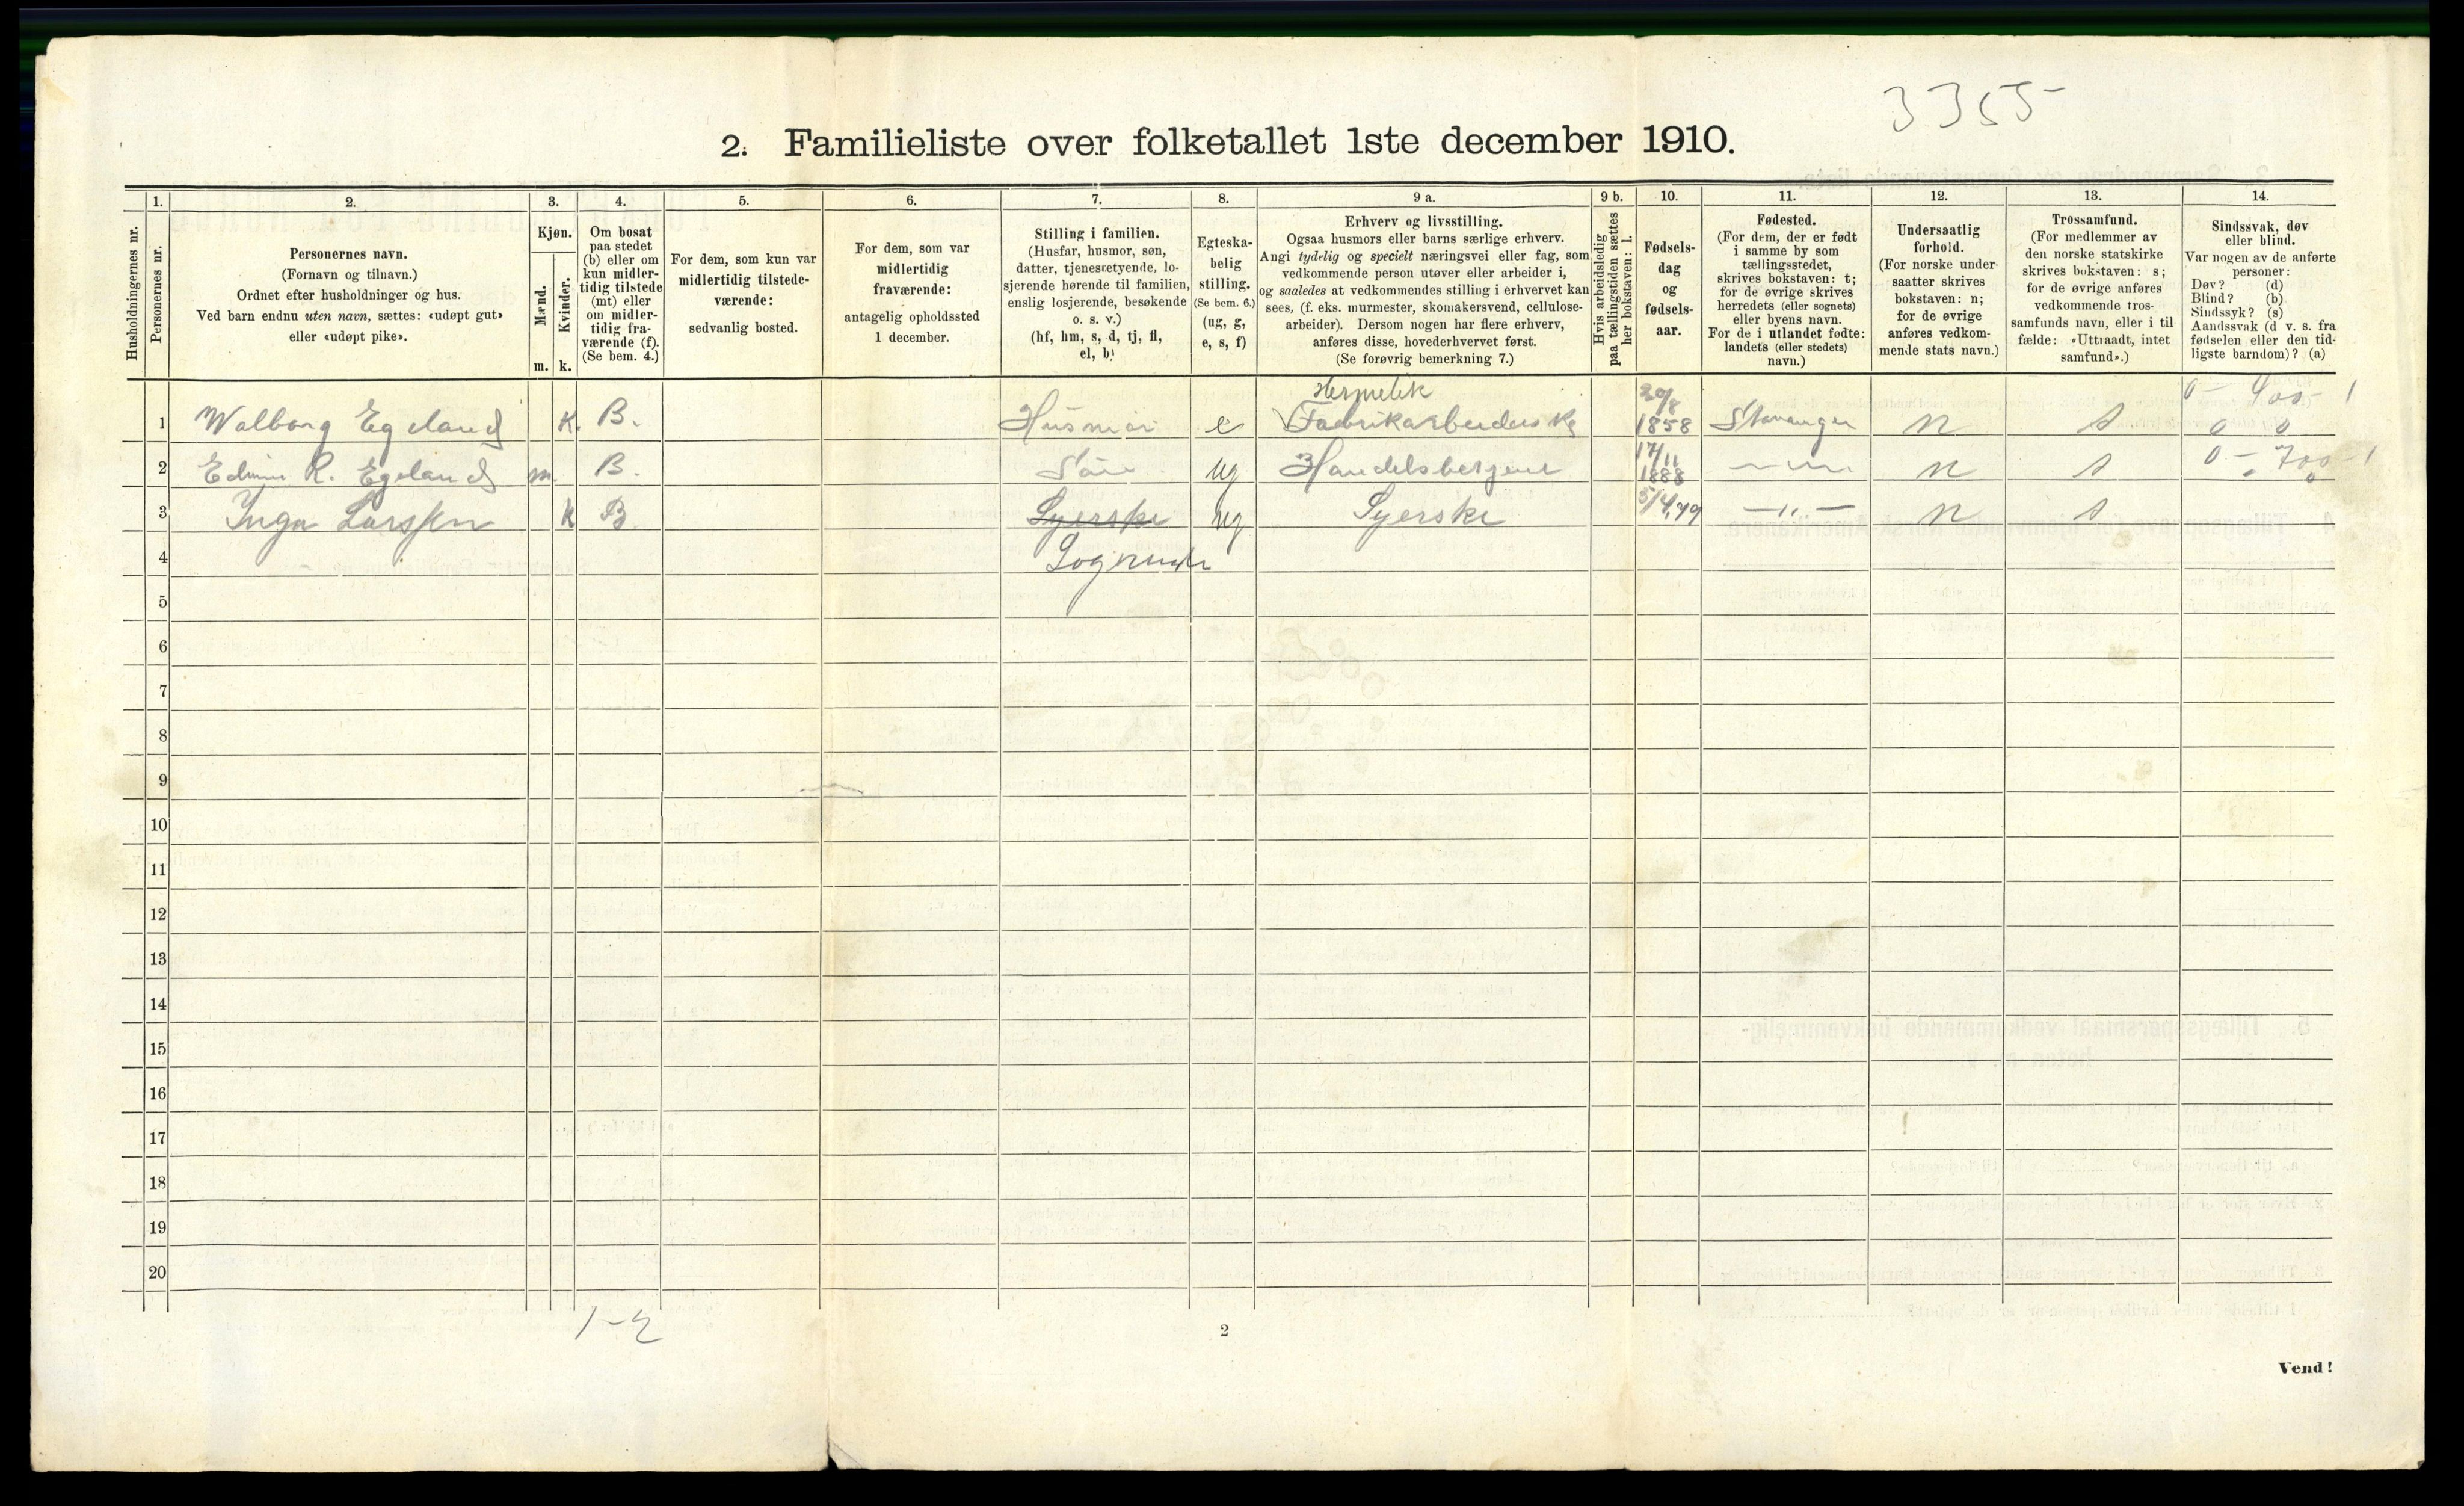 3355
2. Familieliste over folketallet 1ste december 1910.
Husholdningernes nr.
1. Personernes nr.
2. Personernes navn.
(Fornavn og tilnavn.)
Ordnet efter husholdninger og hus.
Ved barn endnu uten navn, sættes: «udøpt gut»
eller «udøpt pike».
3. Kjøn.
Mænd. m.
Kvinder. k.
4. Om bosat
paa stedet
(b) eller om
kun midler-
tidig tilstede
(mt) eller
om midler-
tidig fra-
værende (f).
(Se bem. 4.)
5. For dem, som kun var
midlertidig tilstede-
værende:
sedvanlig bosted.
6. For dem, som var
midlertidig
fraværende:
antagelig opholdssted
1 december.
7. Stilling i familien.
(Husfar, husmor, søn,
datter, tjenestetyende, lo-
sjerende hørende til familien,
enslig losjerende, besøkende
o. s. v.)
(hf, hm, s, d, tj, fl,
el, b)
8. Egteska-
belig
stilling.
(Se bem. 6.)
(ug, g,
e, s, f)
9 a. Erhverv og livsstilling.
Ogsaa husmors eller barns særlige erhverv.
Angi tydelig og specielt næringsvei eller fag, som
vedkommende person utøver eller arbeider i,
og saaledes at vedkommendes stilling i erhvervet kan
sees, (f. eks. murmester, skomakersvend, cellulose-
arbeider). Dersom nogen har flere erhverv,
anføres disse, hovederhvervet først.
(Se forøvrig bemerkning 7.)
9 b. Hvis arbeidsledig
paa tællingstiden sættes
her bokstaven: l.
10. Fødsels-
dag
og
fødsels-
aar.
11. Fødested.
(For dem, der er født
i samme by som
tællingsstedet,
skrives bokstaven: t;
for de øvrige skrives
herredets (eller sognets)
eller byens navn.
For de i utlandet fødte:
landets (eller stedets)
navn.)
12. Undersaatlig
forhold.
(For norske under-
saatter skrives
bokstaven: n;
for de øvrige
anføres vedkom-
mende stats navn.)
13. Trossamfund.
(For medlemmer av
den norske statskirke
skrives bokstaven: s;
for de øvrige anføres
vedkommende tros-
samfunds navn, eller i til
fælde: «Uttraadt, intet
samfund».)
14. Sindssvak, døv
eller blind.
Var nogen av de anførte
personer:
Døv? (d)
Blind? (b)
Sindssyk? (s)
Aandssvak (d v. s. fra
fødselen eller den tid-
ligste barndom)? (a)
Hermetik 20/8 0 - 400 - 1
1 Walborg Egeland K. B. Husmor e Fabrikarbeiderske 1858 Stavanger n s 0 0
2 Edvin R. Egeland m. B. Søn ug Handelsbetjent 17/11 1888 — " — n s 0 - 700 - 1
3 Inga Larssen K B. Syerske ug Syerske 5/4,79 — " — n s
4 Logerende
5
6
7
8
9
10
11
12
13
14
15
16
17
18
19
20
1-2
2
Vend!